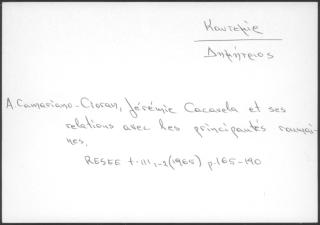 Καντεμίρ
Δημήτριος
A. Camariano-Cioran, Jérémie Cacavela et ses
relations avec les principautés roumai-
nes,
RESEE t. III, 1-2 (1965) p. 165-190